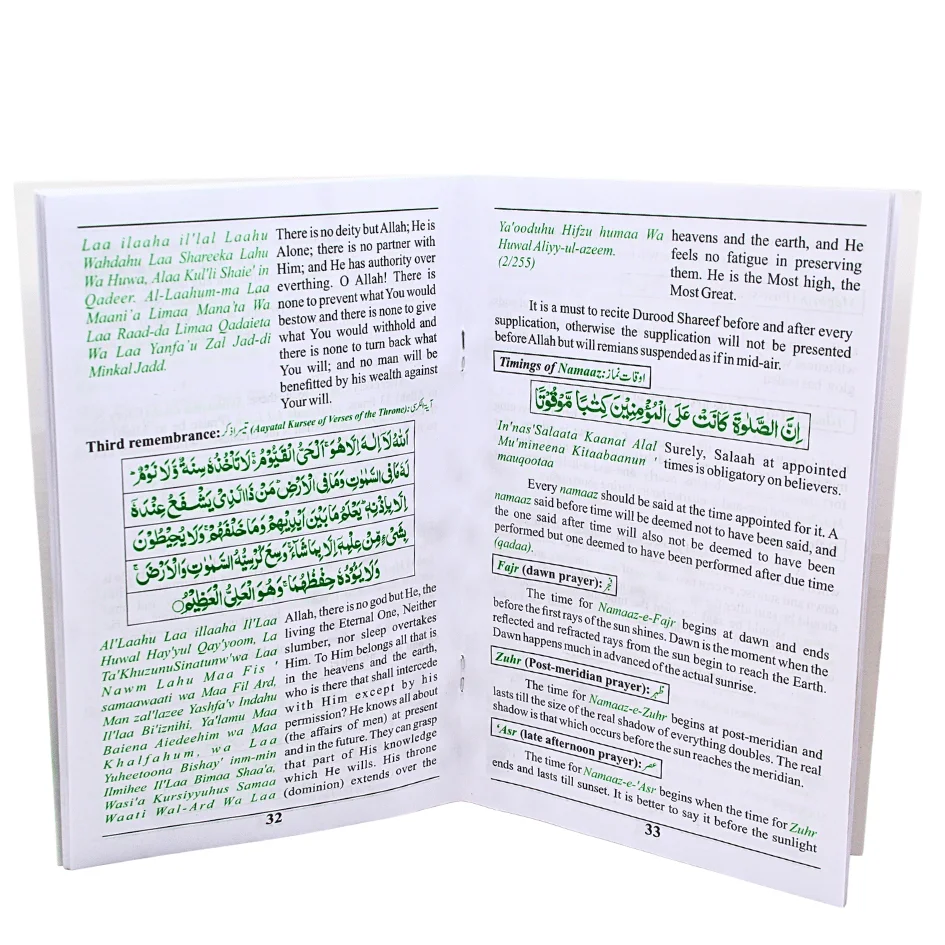 Laa ilaaha il'lal Laahu
Wahdahu Laa Shareeka Lahu
Wa Huwa, Alaa Kul'li Shaie' in
Qadeer. Al-Laahum-ma Laa
Maani'a Limaa Mana'ta Wa
Laa Raad-da Limaa Qadaieta
Wa Laa Yanfa'u Zal Jad-di
Minkal Jadd.
There is no deity but Allah; He is
Alone; there is no partner with
Him; and He has authority over
everthing. O Allah! There is
none to prevent what You would
bestow and there is none to give
what You would withhold and
there is none to turn back what
You will; and no man will be
benefitted by his wealth against
Your will.
Third remembrance: تیسرا ذکر (Aayatal Kursee of Verses of the Throne): آیۃ الکرسی
اَللهُ لَآ اِلٰهَ اِلَّا هُوَ ۚ اَلْحَيُّ الْقَيُّوْمُ ۚ لَا تَاْخُذُهٗ سِنَةٌ وَّلَا نَوْمٌ ؕ
لَهٗ مَا فِي السَّمٰوٰتِ وَمَا فِي الْاَرْضِ ؕ مَنْ ذَا الَّذِيْ يَشْفَعُ عِنْدَهٗٓ
اِلَّا بِاِذْنِهٖ ؕ يَعْلَمُ مَا بَيْنَ اَيْدِيْهِمْ وَمَا خَلْفَهُمْ ۚ وَلَا يُحِيْطُوْنَ
بِشَيْءٍ مِّنْ عِلْمِهٖٓ اِلَّا بِمَا شَآءَ ۚ وَسِعَ كُرْسِيُّهُ السَّمٰوٰتِ وَالْاَرْضَ ۚ
وَلَا يَـُٔوْدُهٗ حِفْظُهُمَا ۚ وَهُوَ الْعَلِيُّ الْعَظِيْمُ ۝
Al'Laahu Laa illaaha Il'Laa
Huwal Hay'yul Qay'yoom, La
Ta'KhuzunuSinatunw'wa Laa
Nawm Lahu Maa Fis '
samaawaati wa Maa Fil Ard,
Man zal'lazee Yashfa'v Indahu
Il'laa Bi'iznihi, Ya'lamu Maa
Baiena Aiedeehim wa Maa
Khalfahum, wa Laa
Yuheetoona Bishay' inm-min
Ilmihee Il'Laa Bimaa Shaa'a,
Wasi'a Kursiyyuhus Samaa
Waati Wal-Ard Wa Laa
Allah, there is no god but He, the
living the Eternal One, Neither
slumber, nor sleep overtakes
Him. To Him belongs all that is
in the heavens and the earth,
who is there that shall intercede
with Him except by his
permission? He knows all about
(the affairs of men) at present
and in the future. They can grasp
that part of His knowledge
which He wills. His throne
(dominion) extends over the
32
Ya'ooduhu Hifzu humaa Wa
Huwal Aliyy-ul-azeem.
(2/255)
heavens and the earth, and He
feels no fatigue in preserving
them. He is the Most high, the
Most Great.
It is a must to recite Durood Shareef before and after every
supplication, otherwise the supplication will not be presented
before Allah but will remians suspended as if in mid-air.
Timings of Namaaz: اوقات نماز
اِنَّ الصَّلٰوةَ كَانَتْ عَلَى الْمُؤْمِنِيْنَ كِتٰبًا مَّوْقُوْتًا
In'nas'Salaata Kaanat Alal
Mu'mineena Kitaabaanun '
mauqootaa
Surely, Salaah at appointed
times is obligatory on believers.
Every namaaz should be said at the time appointed for it. A
namaaz said before time will be deemed not to have been said, and
the one said after time will also not be deemed to have been
performed but one deemed to have been performed after due time
(qadaa).
Fajr (dawn prayer): فجر
The time for Namaaz-e-Fajr begins at dawn and ends
before the first rays of the sun shines. Dawn is the moment when the
reflected and refracted rays from the sun begin to reach the Earth.
Dawn happens much in advanced of the actual sunrise.
Zuhr (Post-meridian prayer): ظہر
The time for Namaaz-e-Zuhr begins at post-meridian and
lasts till the size of the real shadow of everything doubles. The real
shadow is that which occurs before the sun reaches the meridian.
'Asr (late afternoon prayer): عصر
The time for Namaaz-e-'Asr begins when the time for Zuhr
ends and lasts till sunset. It is better to say it before the sunlight
33